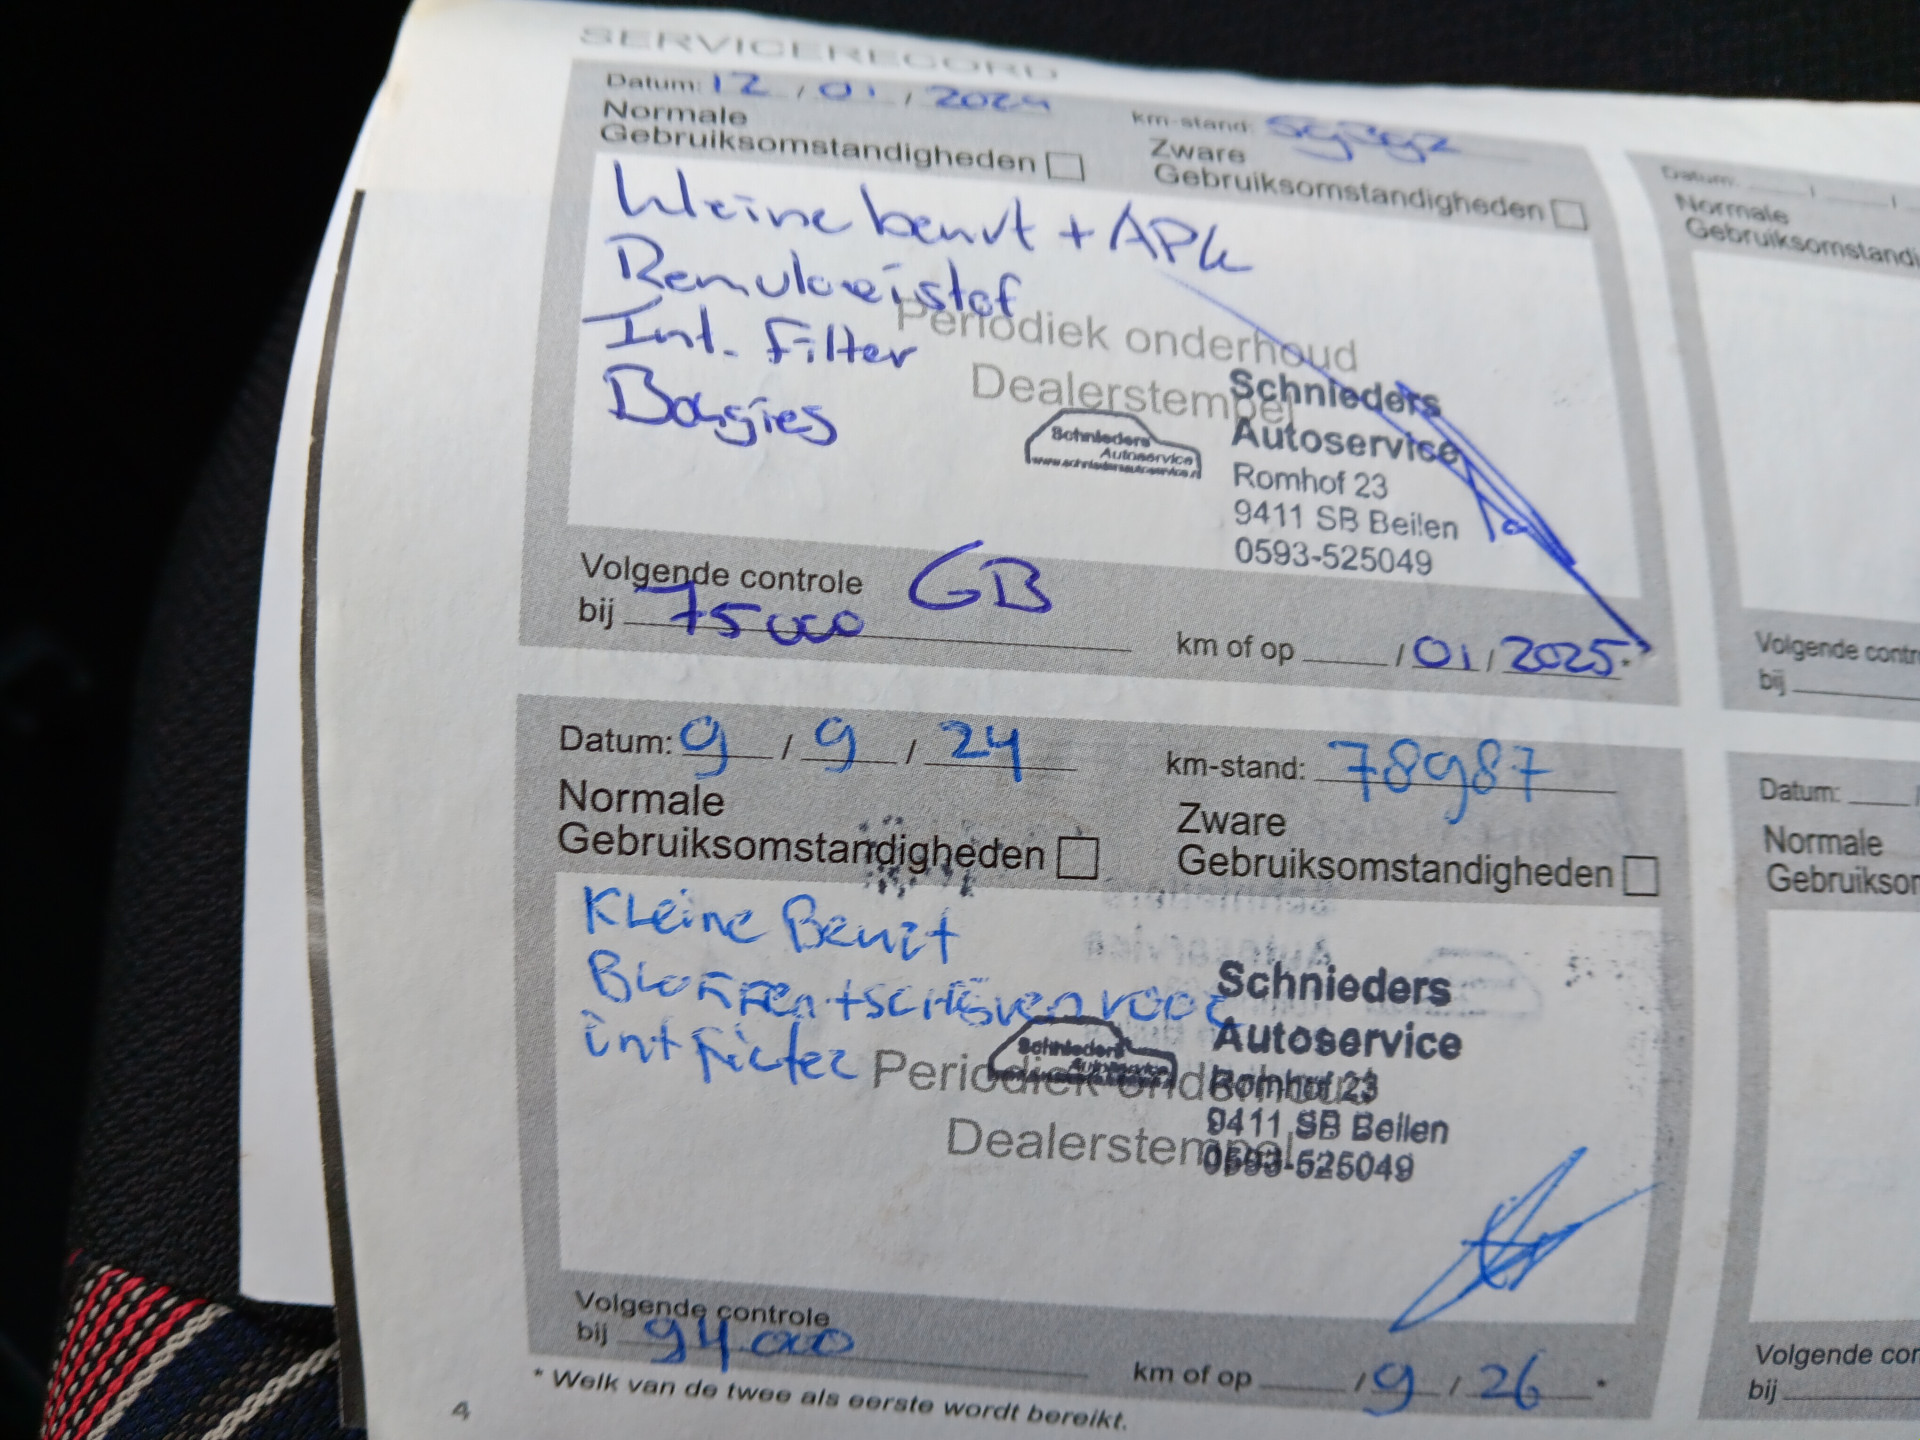 SERVICERECORD
Datum: 12 / 01 / 2024
km-stand: 59392
Normale
Gebruiksomstandigheden
Zware
Gebruiksomstandigheden
Kleine beurt + APK
Remvloeistof
Int. Filter
Bougies
Periodiek onderhoud
Dealerstempel
Schnieders
Autoservice
Schnieders
Autoservice
Romhof 23
9411 SB Beilen
0593-525049
Volgende controle GB
bij 75000 km of op / 01 / 2025 *
Datum: 9 / 9 / 24
km-stand: 78987
Normale
Gebruiksomstandigheden
Zware
Gebruiksomstandigheden
Kleine Beurt
Blokken + schijven voor
int filter
Periodiek onderhoud
Dealerstempel
Schnieders
Autoservice
Schnieders
Autoservice
Romhof 23
9411 SB Beilen
0593-525049
Volgende controle
bij 94000 km of op / 9 / 26 *
* Welk van de twee als eerste wordt bereikt.
4
Datum: / /
Normale
Volgende
bij
Datum: /
Normale
Volgende
bij